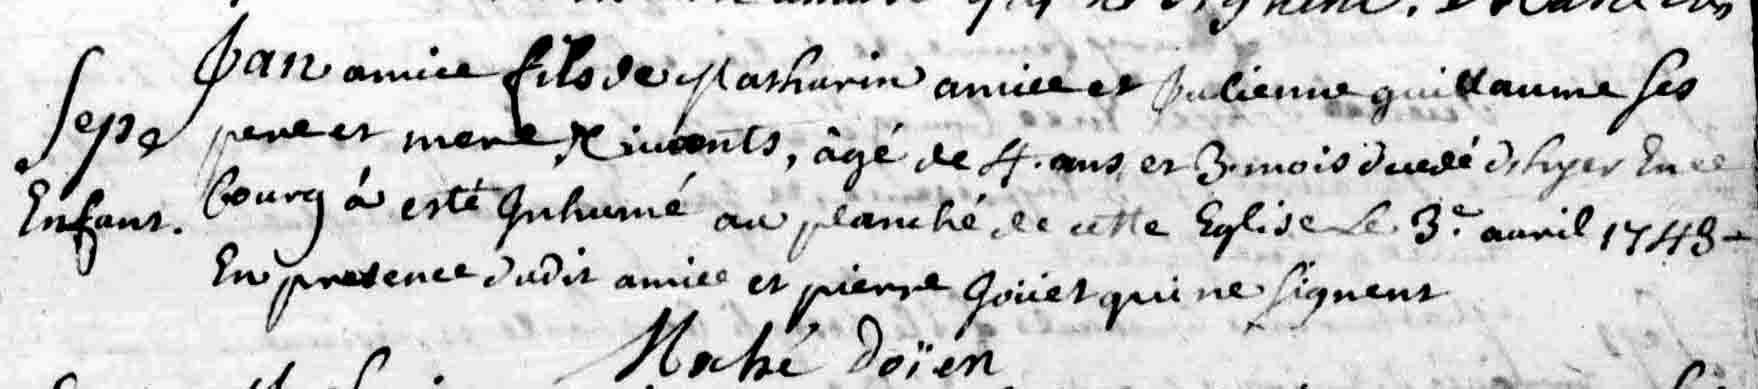 Jan amice fils de Matharin amice et Julienne guillaume ses
Sepe pere et mere, vivants, âgé de 4. ans et 3. mois decedé dhyer En ce
Enfant. bourg á esté Inhumé au planché de cette Eglise Le 3.e avril 1743
En presence dudit amice et pierre Joüet qui ne signent
doïen